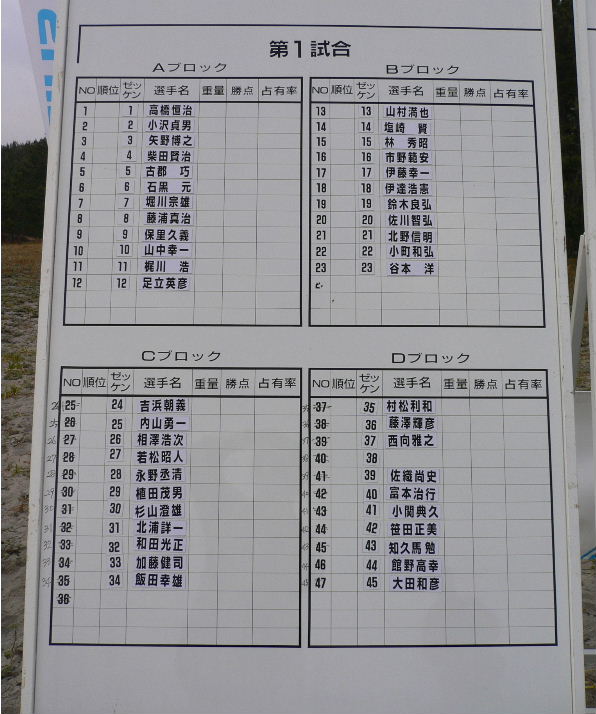 第1試合
Aブロック
NO 順位 ゼッケン 選手名 重量 勝点 占有率
1 1 高橋恒治
2 2 小沢貞男
3 3 矢野博之
4 4 柴田賢治
5 5 古郡 巧
6 6 石黒 元
7 7 堀川宗雄
8 8 藤浦真治
9 9 保里久義
10 10 山中幸一
11 11 梶川 浩
12 12 足立英彦
Bブロック
NO 順位 ゼッケン 選手名 重量 勝点 占有率
13 13 山村満也
14 14 塩崎 賢
15 15 林 秀昭
16 16 市野範安
17 17 伊藤幸一
18 18 伊達浩憲
19 19 鈴木良弘
20 20 佐川智弘
21 21 北野信明
22 22 小町和弘
23 23 谷本 洋
Cブロック
NO 順位 ゼッケン 選手名 重量 勝点 占有率
25 24 吉浜朝義
26 25 内山勇一
27 26 相澤浩次
28 27 若松昭人
29 28 永野丞清
30 29 植田茂男
31 30 杉山澄雄
32 31 北浦詳一
33 32 和田光正
34 33 加藤健司
35 34 飯田幸雄
36
Dブロック
NO 順位 ゼッケン 選手名 重量 勝点 占有率
37 35 村松利和
38 36 藤澤輝彦
39 37 西向雅之
40 38
41 39 佐織尚史
42 40 富本治行
43 41 小関典久
44 42 笹田正美
45 43 知久馬勉
46 44 館野高幸
47 45 大田和彦